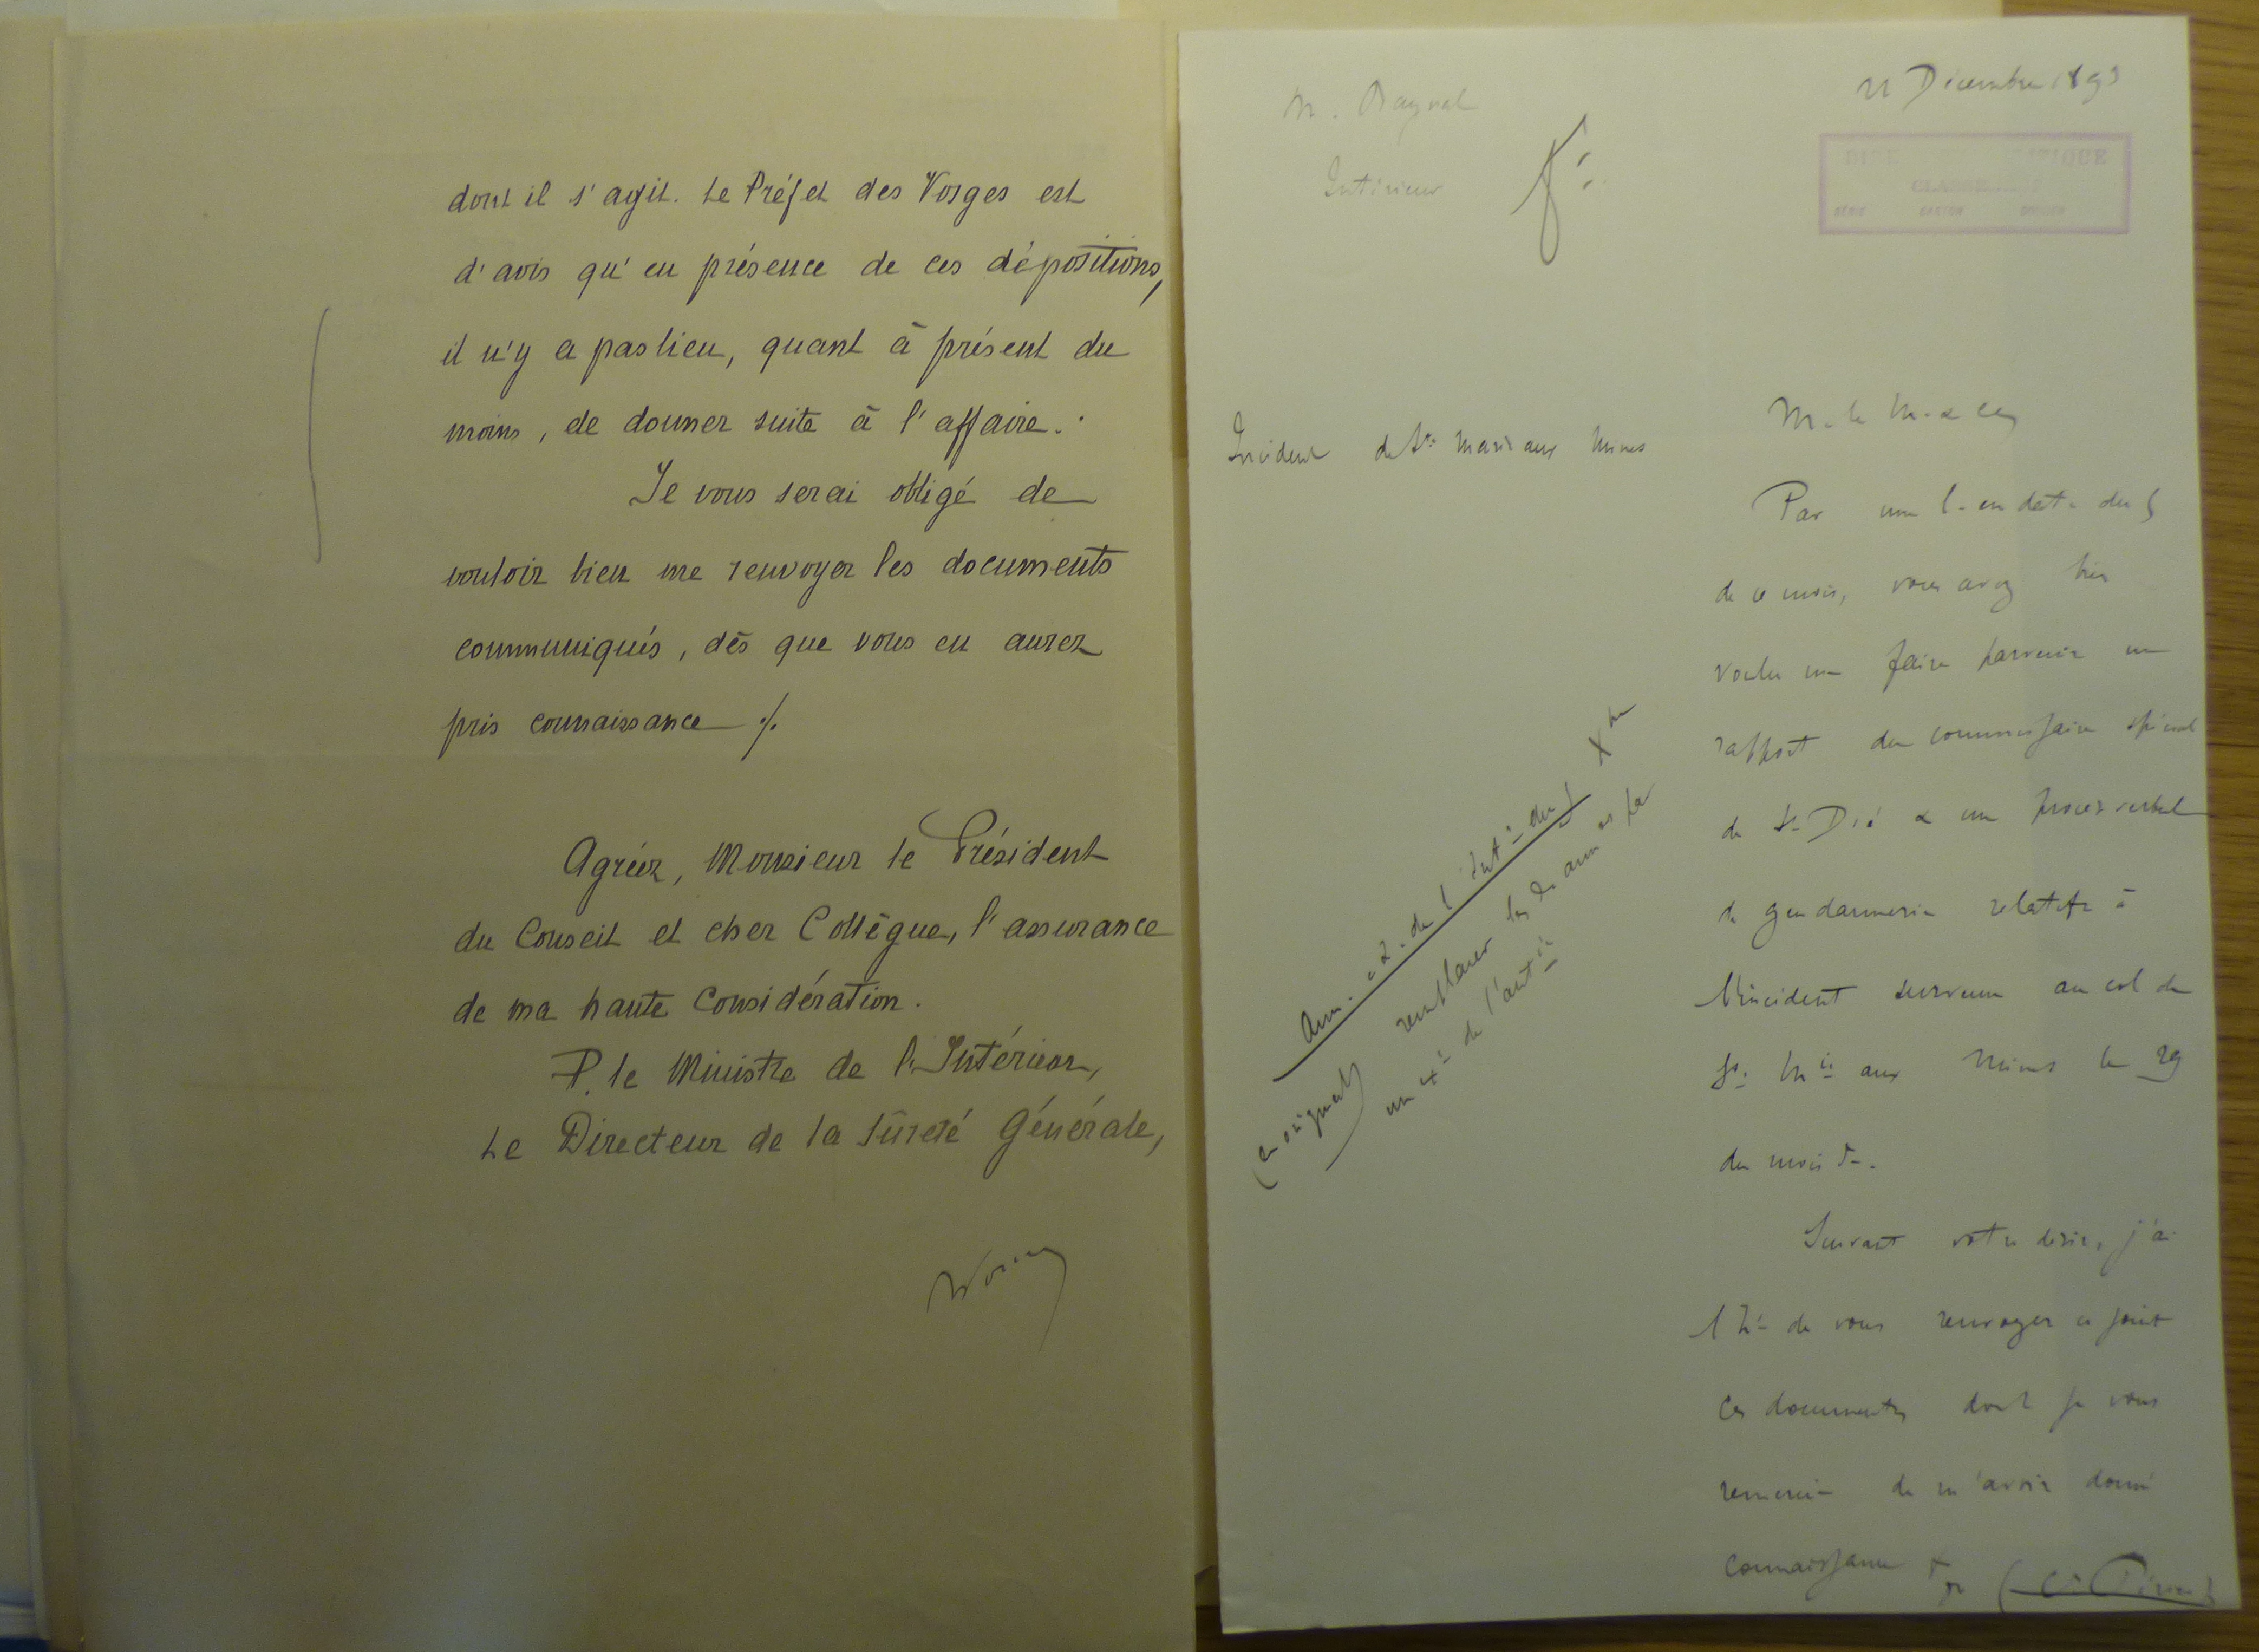 dont il s'agit. Le Préfet des Vosges est
d'avis qu'en présence de ces dépositions,
il n'y a pas lieu, quant à présent du
moins, de donner suite à l'affaire.
Je vous serai obligé de
vouloir bien me renvoyer les documents
communiqués, dès que vous en aurez
pris connaissance ./.
Agréez, Monsieur le Président
du Conseil et cher Collègue, l'assurance
de ma haute Considération.
P. le Ministre de l'Intérieur,
Le Directeur de la Sûreté Générale,
M. Raynal
Intérieur
Décembre 1893
SÉRIE CARTON DOSSIER
Incident de Ste Marie aux Mines
M. le M. &
Par une l. en date du 5
de ce mois, vous avez bien
voulu me faire parvenir un
rapport du commissaire spécial
de St Dié & un procès verbal
de gendarmerie relatifs à
l'incident survenu au col de
Ste Mie aux Mines le 29
du mois dr.
Suivant votre désir, j'ai
l'h. de vous renvoyer ci joint
ces documents dont je vous
remercie de m'avoir donné
connaissance
Ann. à l. de l'Intr du 5 Xbre
(en original) remplacer les
de l'Intr